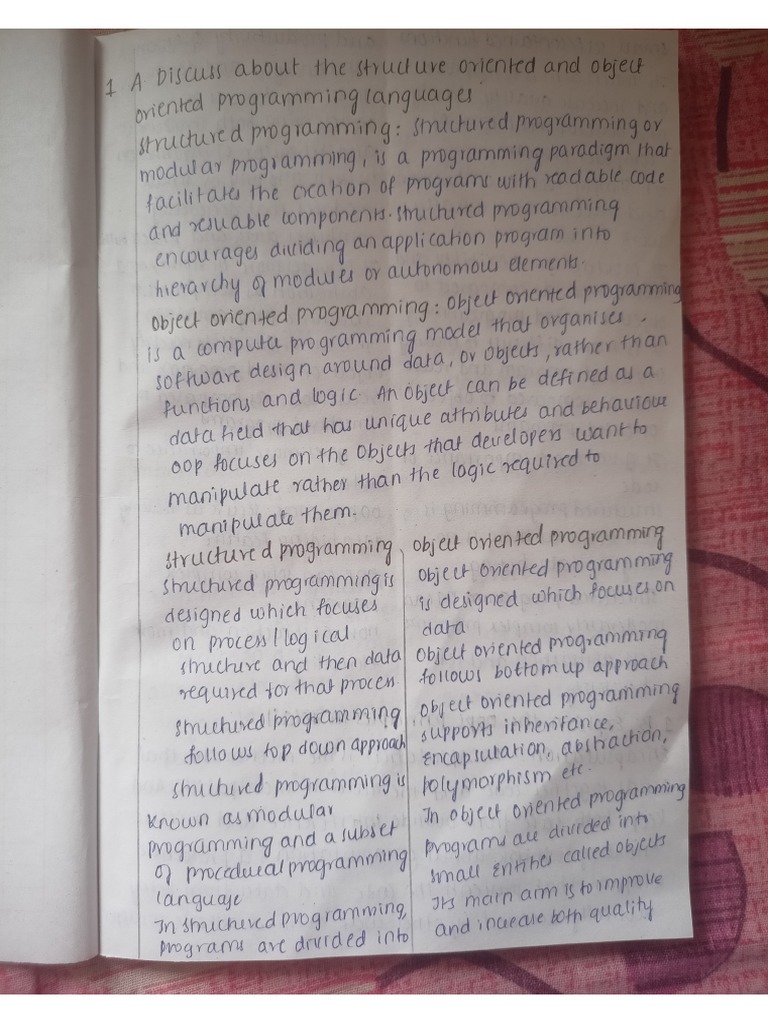 1 A Discuss about the structure oriented and object
oriented programming languages
structured programming: structured programming or
modular programming, is a programming paradigm that
facilitates the creation of programs with readable code
and resuable components. structured programming
encourages dividing an application program into
hierarchy of modules or autonomous elements.
object oriented programming: object oriented programming
is a computer programming model that organises
software design around data, or objects, rather than
functions and logic. An object can be defined as a
data field that has unique attributes and behaviour
oop focuses on the objects that developers want to
manipulate rather than the logic required to
manipulate them.
structured programming
structured programming is
designed which focuses
on process/logical
structure and then data
required for that process
structured programming
follows top down approach
structured programming is
known as modular
programming and a subset
of procedural programming
language
In structured programming,
programs are divided into
object oriented programming
object oriented programming
is designed which focuses on
data
object oriented programming
follows bottom up approach
object oriented programming
supports inheritance,
Encapsulation, abstraction,
polymorphism etc.
In object oriented programming
programs are divided into
small entities called objects
Its main aim is to improve
and increase both quality